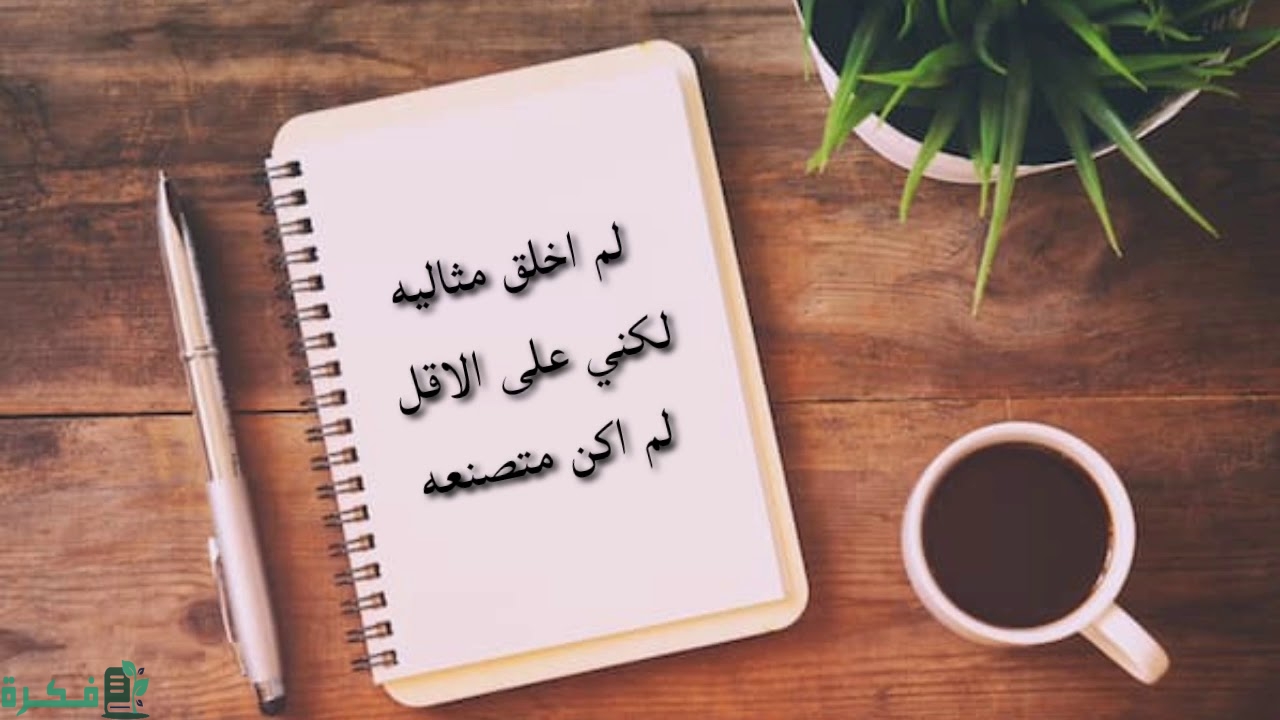 لم اخلق مثاليه
لكني على الاقل
لم اكن متصنعه
فكرة